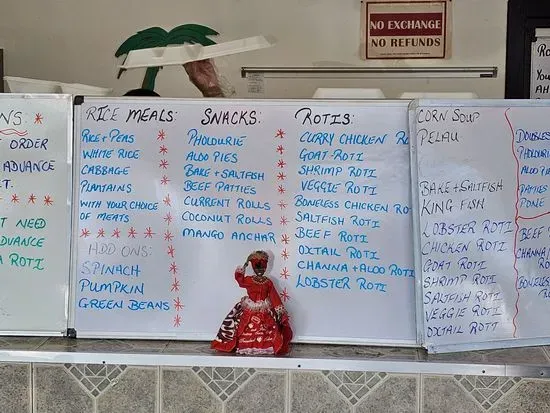 NO EXCHANGE
NO REFUNDS
NS:
ORDER
ADVANCE
T.
T NEED
DVANCE
A ROTI
RICE MEALS:
RICE + PEAS
WHITE RICE
CABBAGE
PLANTAINS
WITH YOUR CHOICE
OF MEATS
ADD ONS:
SPINACH
PUMPKIN
GREEN BEANS
SNACKS:
PHOLOURIE
ALOO PIES
BAKE + SALTFISH
BEEF PATTIES
CURRENT ROLLS
COCONUT ROLLS
MANGO ANCHAR
ROTIS:
CURRY CHICKEN RO
GOAT ROTI
SHRIMP ROTI
VEGGIE ROTI
BONELESS CHICKEN RO
SALTFISH ROTI
BEEF ROTI
OXTAIL ROTI
CHANNA + ALOO ROTI
LOBSTER ROTI
CORN SOUP
PELAU
BAKE + SALTFISH
KING FISH
LOBSTER ROTI
CHICKEN ROTI
GOAT ROTI
SHRIMP ROTI
SALTFISH ROTI
VEGGIE ROTI
OXTAIL ROTI
DOUBLES
PHOLOURI
ALOO PIES
PATTIES
PONE
BEEF
CHANNA
RO
BONELES